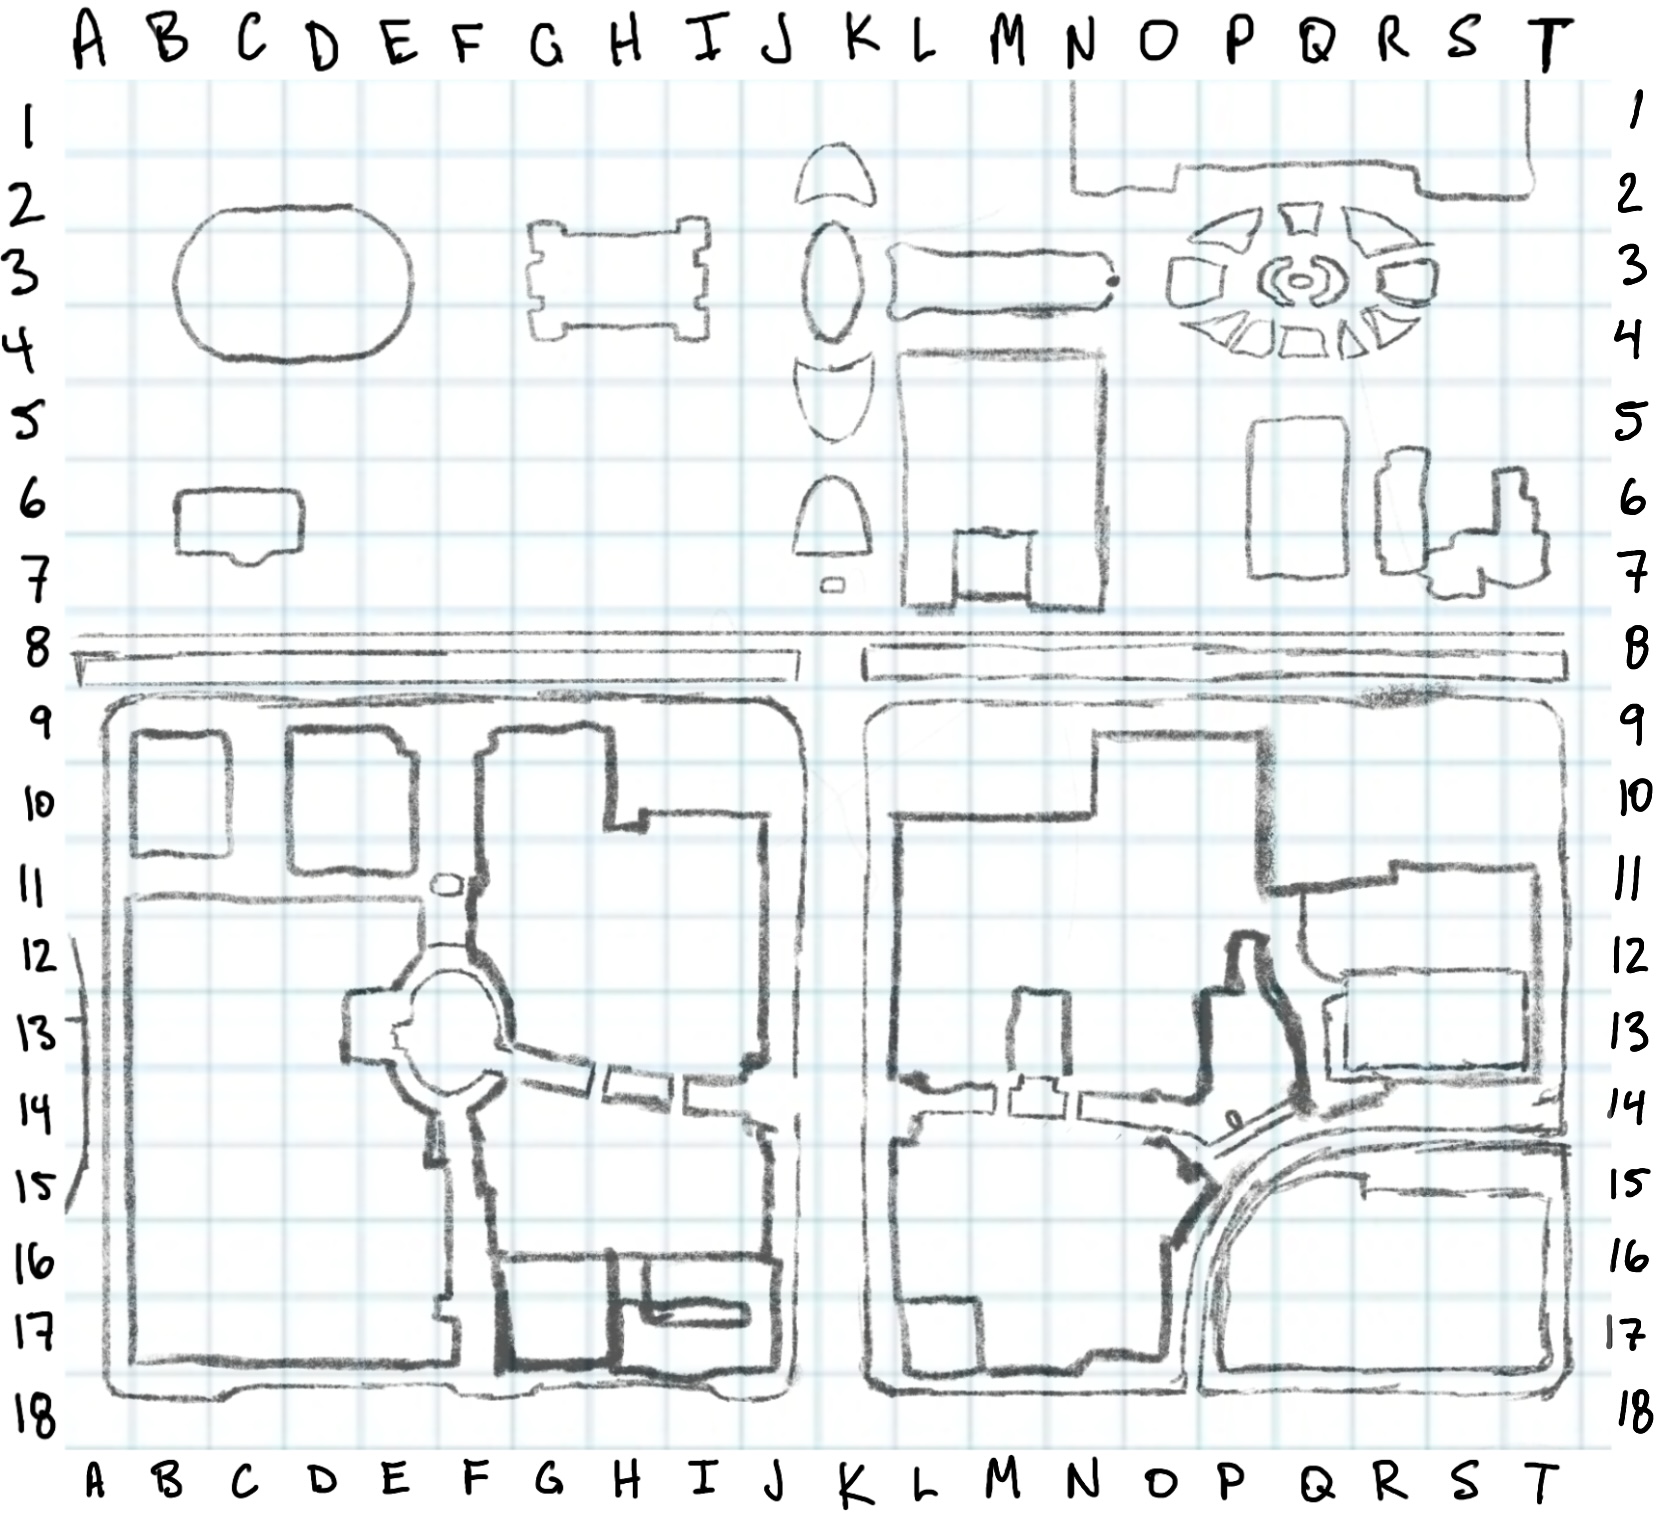 A B C D E F G H I J K L M N O P Q R S T
1 1
2 2
3 3
4 4
5 5
6 6
7 7
8 8
9 9
10 10
11 11
12 12
13 13
14 14
15 15
16 16
17 17
18 18
A B C D E F G H I J K L M N O P Q R S T